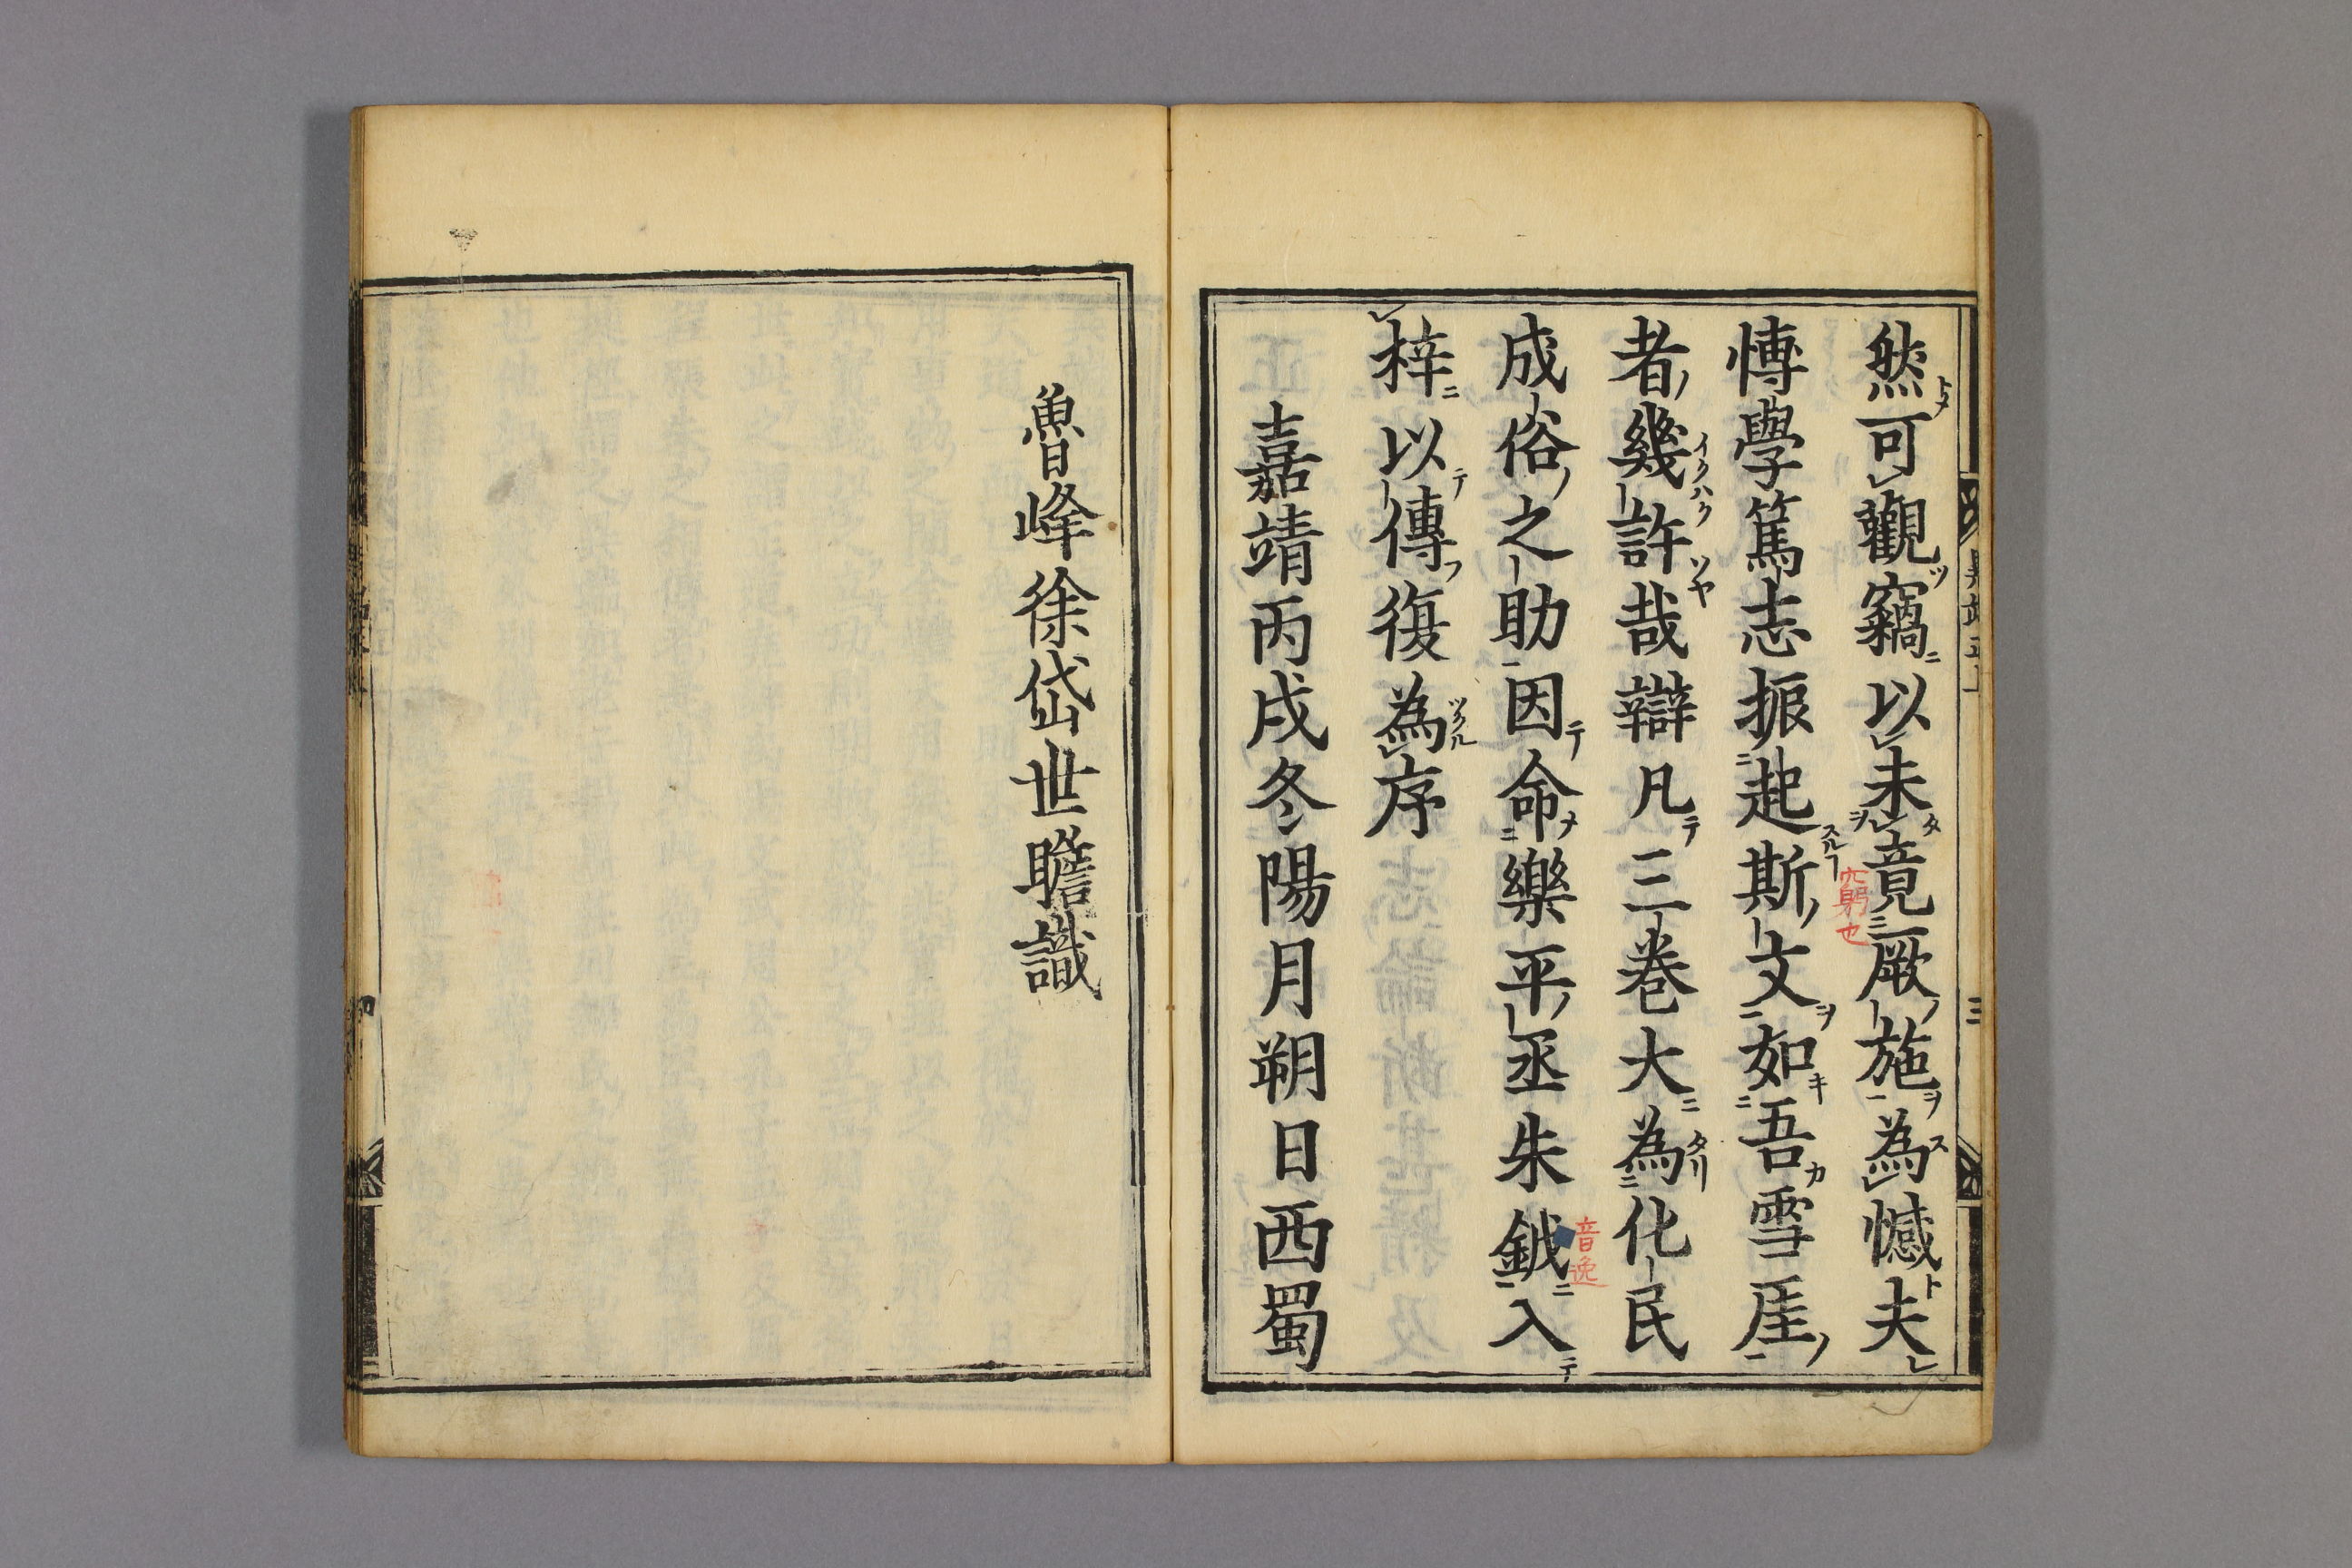 然可觀竊以未竟厥施為憾夫
博學篤志振起斯文如吾雪厓
者幾許哉辯凡三巻大為化民
成俗之助因命樂平丞朱鉞入
梓以傳復為序
嘉靖丙戌冬陽月朔日西蜀
魯峰徐岱世瞻識
窮也
音逸
三